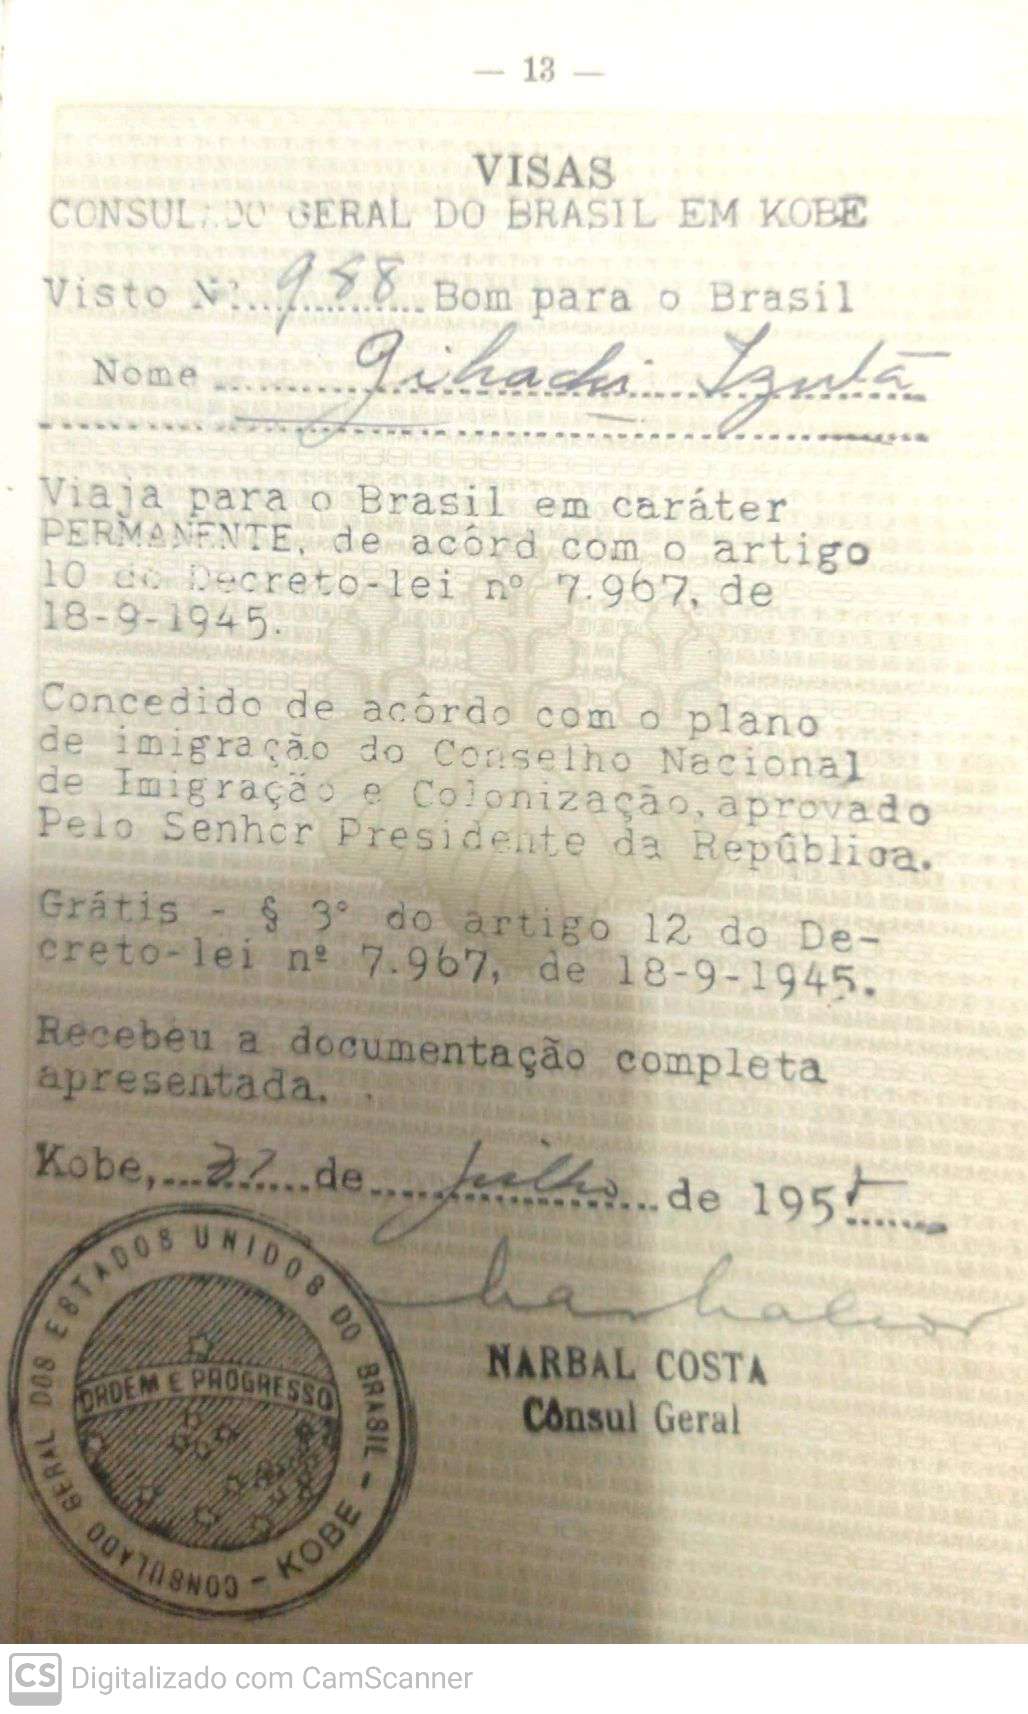 — 13 —
VISAS
CONSULADO GERAL DO BRASIL EM KOBE
Visto Nº 988 Bom para o Brasil
Nome Gihachi Izuta
Viaja para o Brasil em caráter
PERMANENTE, de acórd com o artigo
10 do Decreto-lei nº 7.967, de
18-9-1945.
Concedido de acôrdo com o plano
de imigração do Conselho Nacional
de Imigração e Colonização, aprovado
Pelo Senhor Presidente da Repûblica.
Grátis - § 3º do artigo 12 do De-
creto-lei nº 7.967, de 18-9-1945.
Recebeu a documentação completa
apresentada.
Kobe, de julho de 195
NARBAL COSTA
Cônsul Geral
CONSULADO GERAL DOS ESTADOS UNIDOS DO BRASIL - KOBE -
ORDEM E PROGRESSO
CS Digitalizado com CamScanner